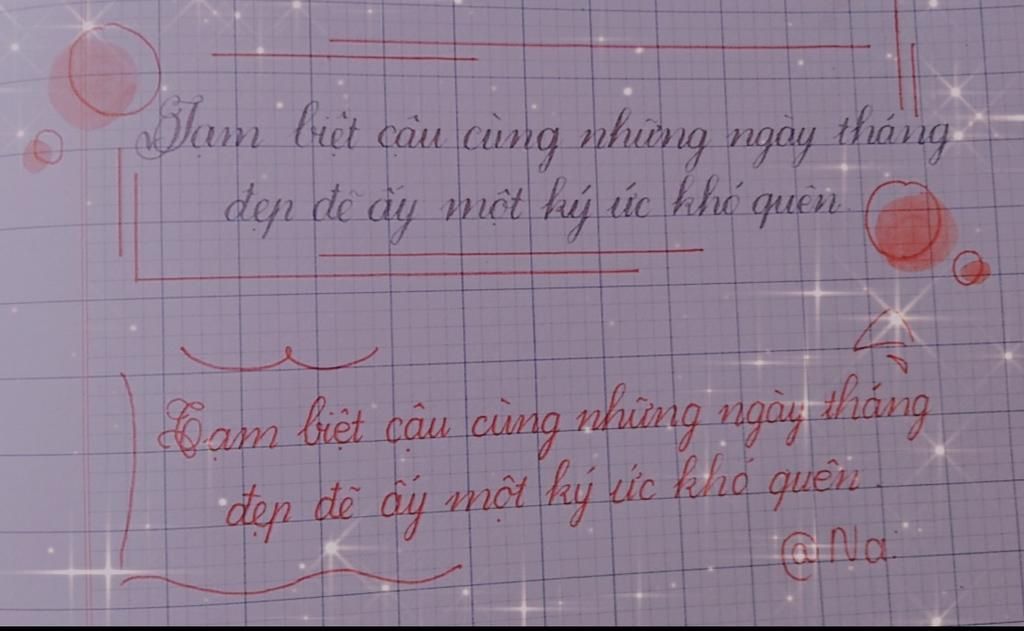 Tạm biệt cậu cùng những ngày tháng
đẹp đẽ ấy một ký ức khó quên
Tạm biệt cậu cùng những ngày tháng
đẹp đẽ ấy một ký ức khó quên.
@Na.